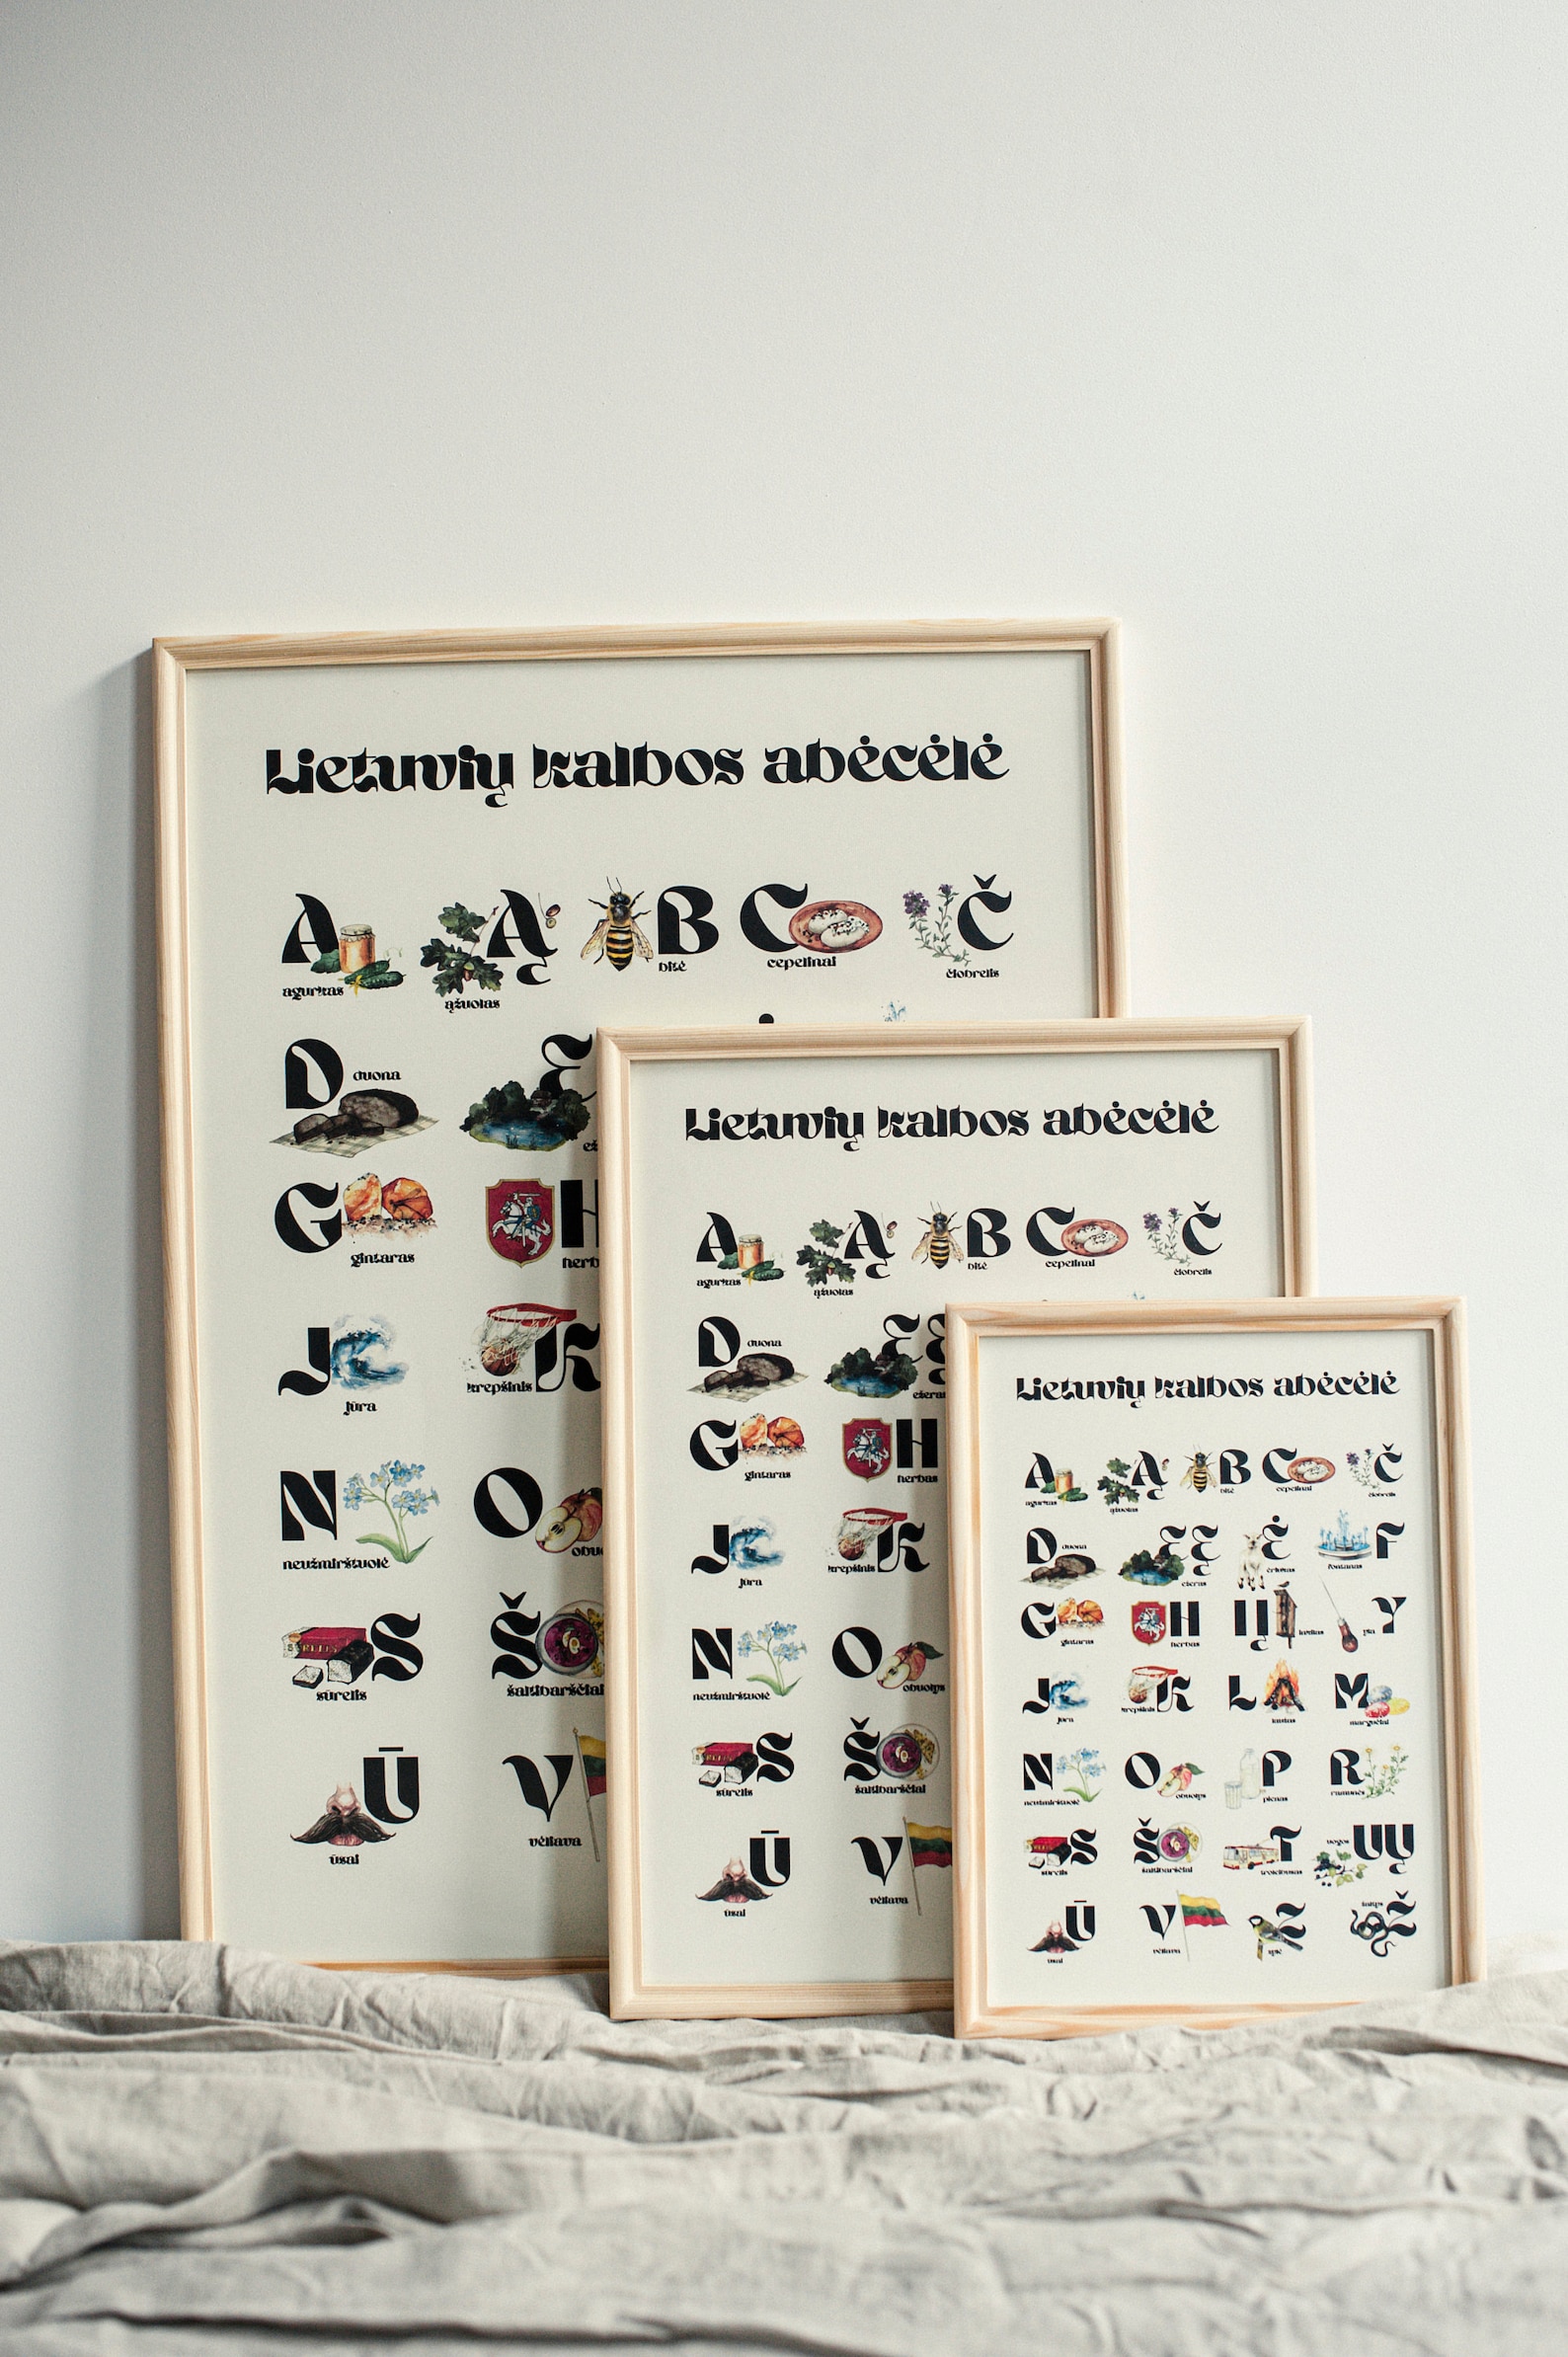 Lietuvių kalbos abėcėlė
A Ą B C Č
agurkas ąžuolas bitė cepelinai čiobrelis
D duona E
G H
gintaras herb
J K
jūra krepšinis
N O
neužmirštuolė obuo
S Š
sūrelis šaltibarščiai
Ū V
ūsai vėliava
Lietuvių kalbos abėcėlė
A Ą B C Č
agurkas ąžuolas bitė cepelinai čiobrelis
D duona E Ę
ežeras
G H
gintaras herbas
J K
jūra krepšinis
N O
neužmirštuolė obuolys
S Š
sūrelis šaltibarščiai
Ū V
ūsai vėliava
Lietuvių kalbos abėcėlė
A Ą B C Č
agurkas ąžuolas bitė cepelinai čiobrelis
D duona E Ę Ė F
ežeras ėriukas fontanas
G H I Į inkilas yla Y
gintaras herbas
J K L M
jūra krepšinis laužas margučiai
N O P R
neužmirštuolė obuolys pienas ramunės
S Š T uogos U Ų
sūrelis šaltibarščiai troleibusas
Ū V Z žaltys Ž
ūsai vėliava zylė